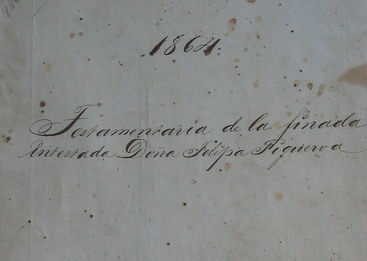 1864
Testamentaria de la finada
Intestada Doña Filipa Figueroa